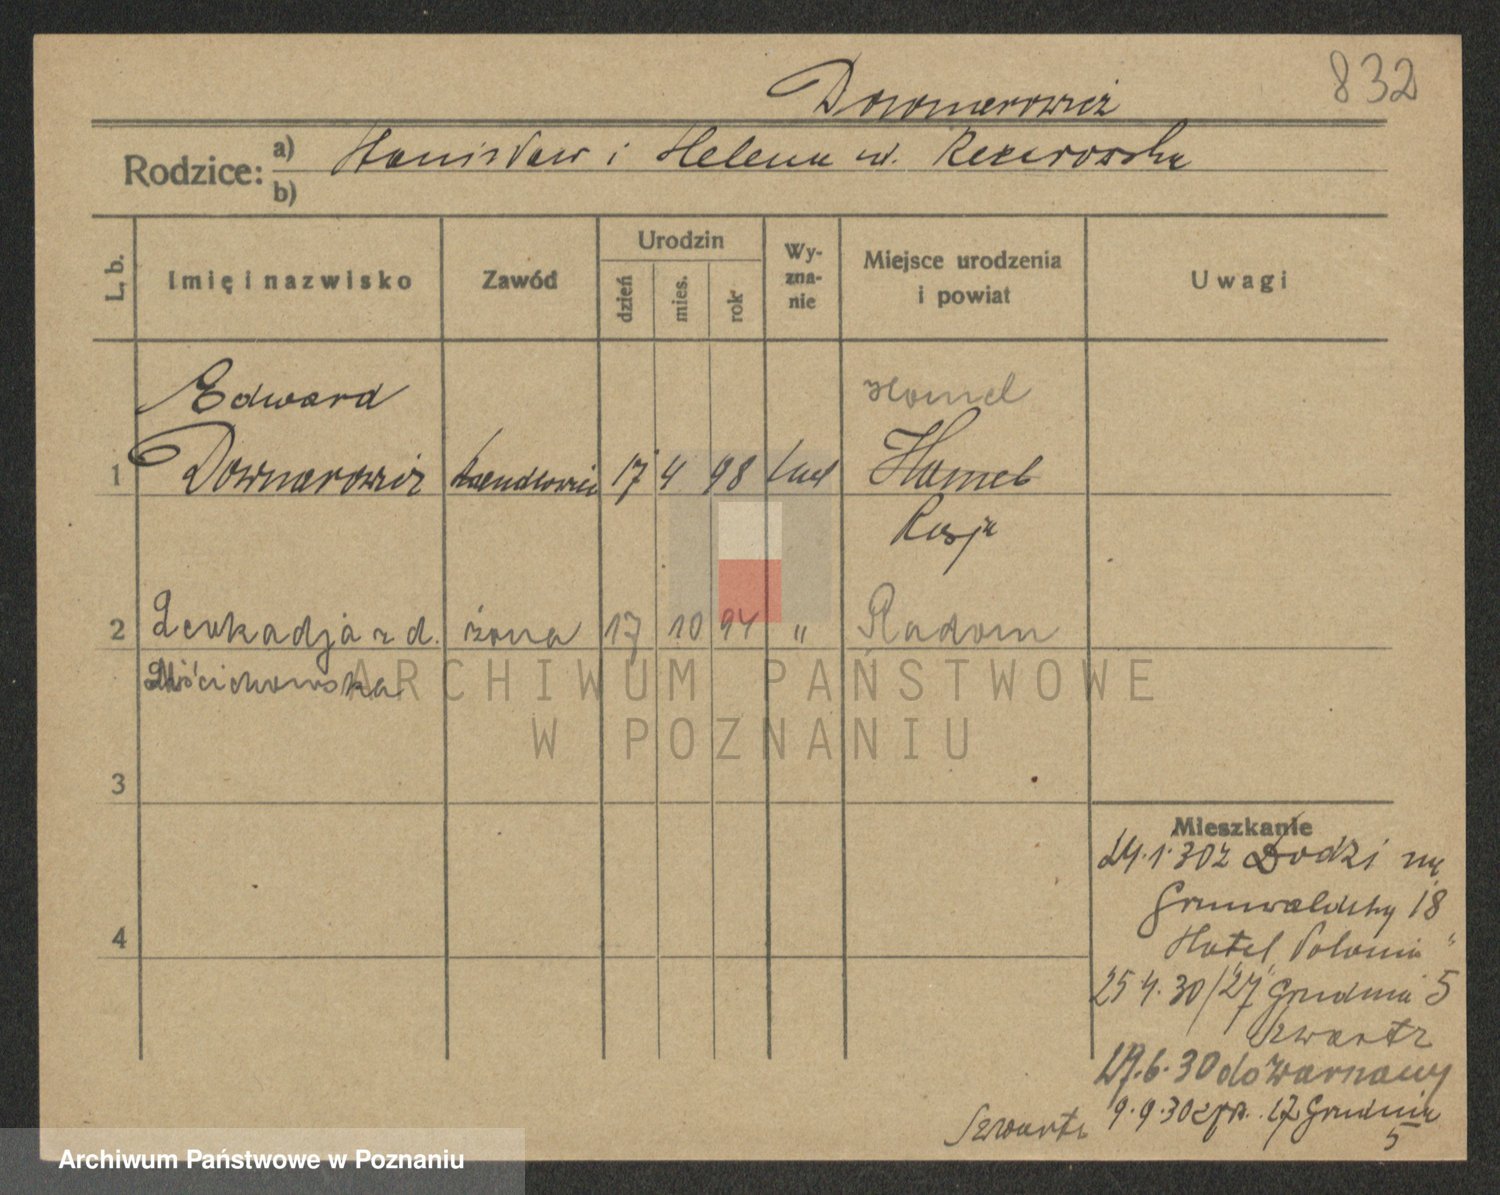 832
Downarowicz
Rodzice: a) Stanisław i Helena ur.
b)
L. b.
Imię i nazwisko
Zawód
Urodzin
dzień
mies.
rok
Wy-
zna-
nie
Miejsce urodzenia
i powiat
Uwagi
Edward
Homel
1 Downarowicz handlowiec 17 4 98 Homel
Rosja
2 Leukadja z d. żona 17 10 94 " Radom
Mościchowska
3
4
Mieszkanie
24.1.30 z Łodzi
Grunwaldzka 18
Hotel Polonia"
25 4.30 / 27 Grudnia 5
Szwartz
27.6.30 do Warszawy
Szwartz 9.9.30 27 Grudnia
5
ARCHIWUM PAŃSTWOWE
W POZNANIU
Archiwum Państwowe w Poznaniu